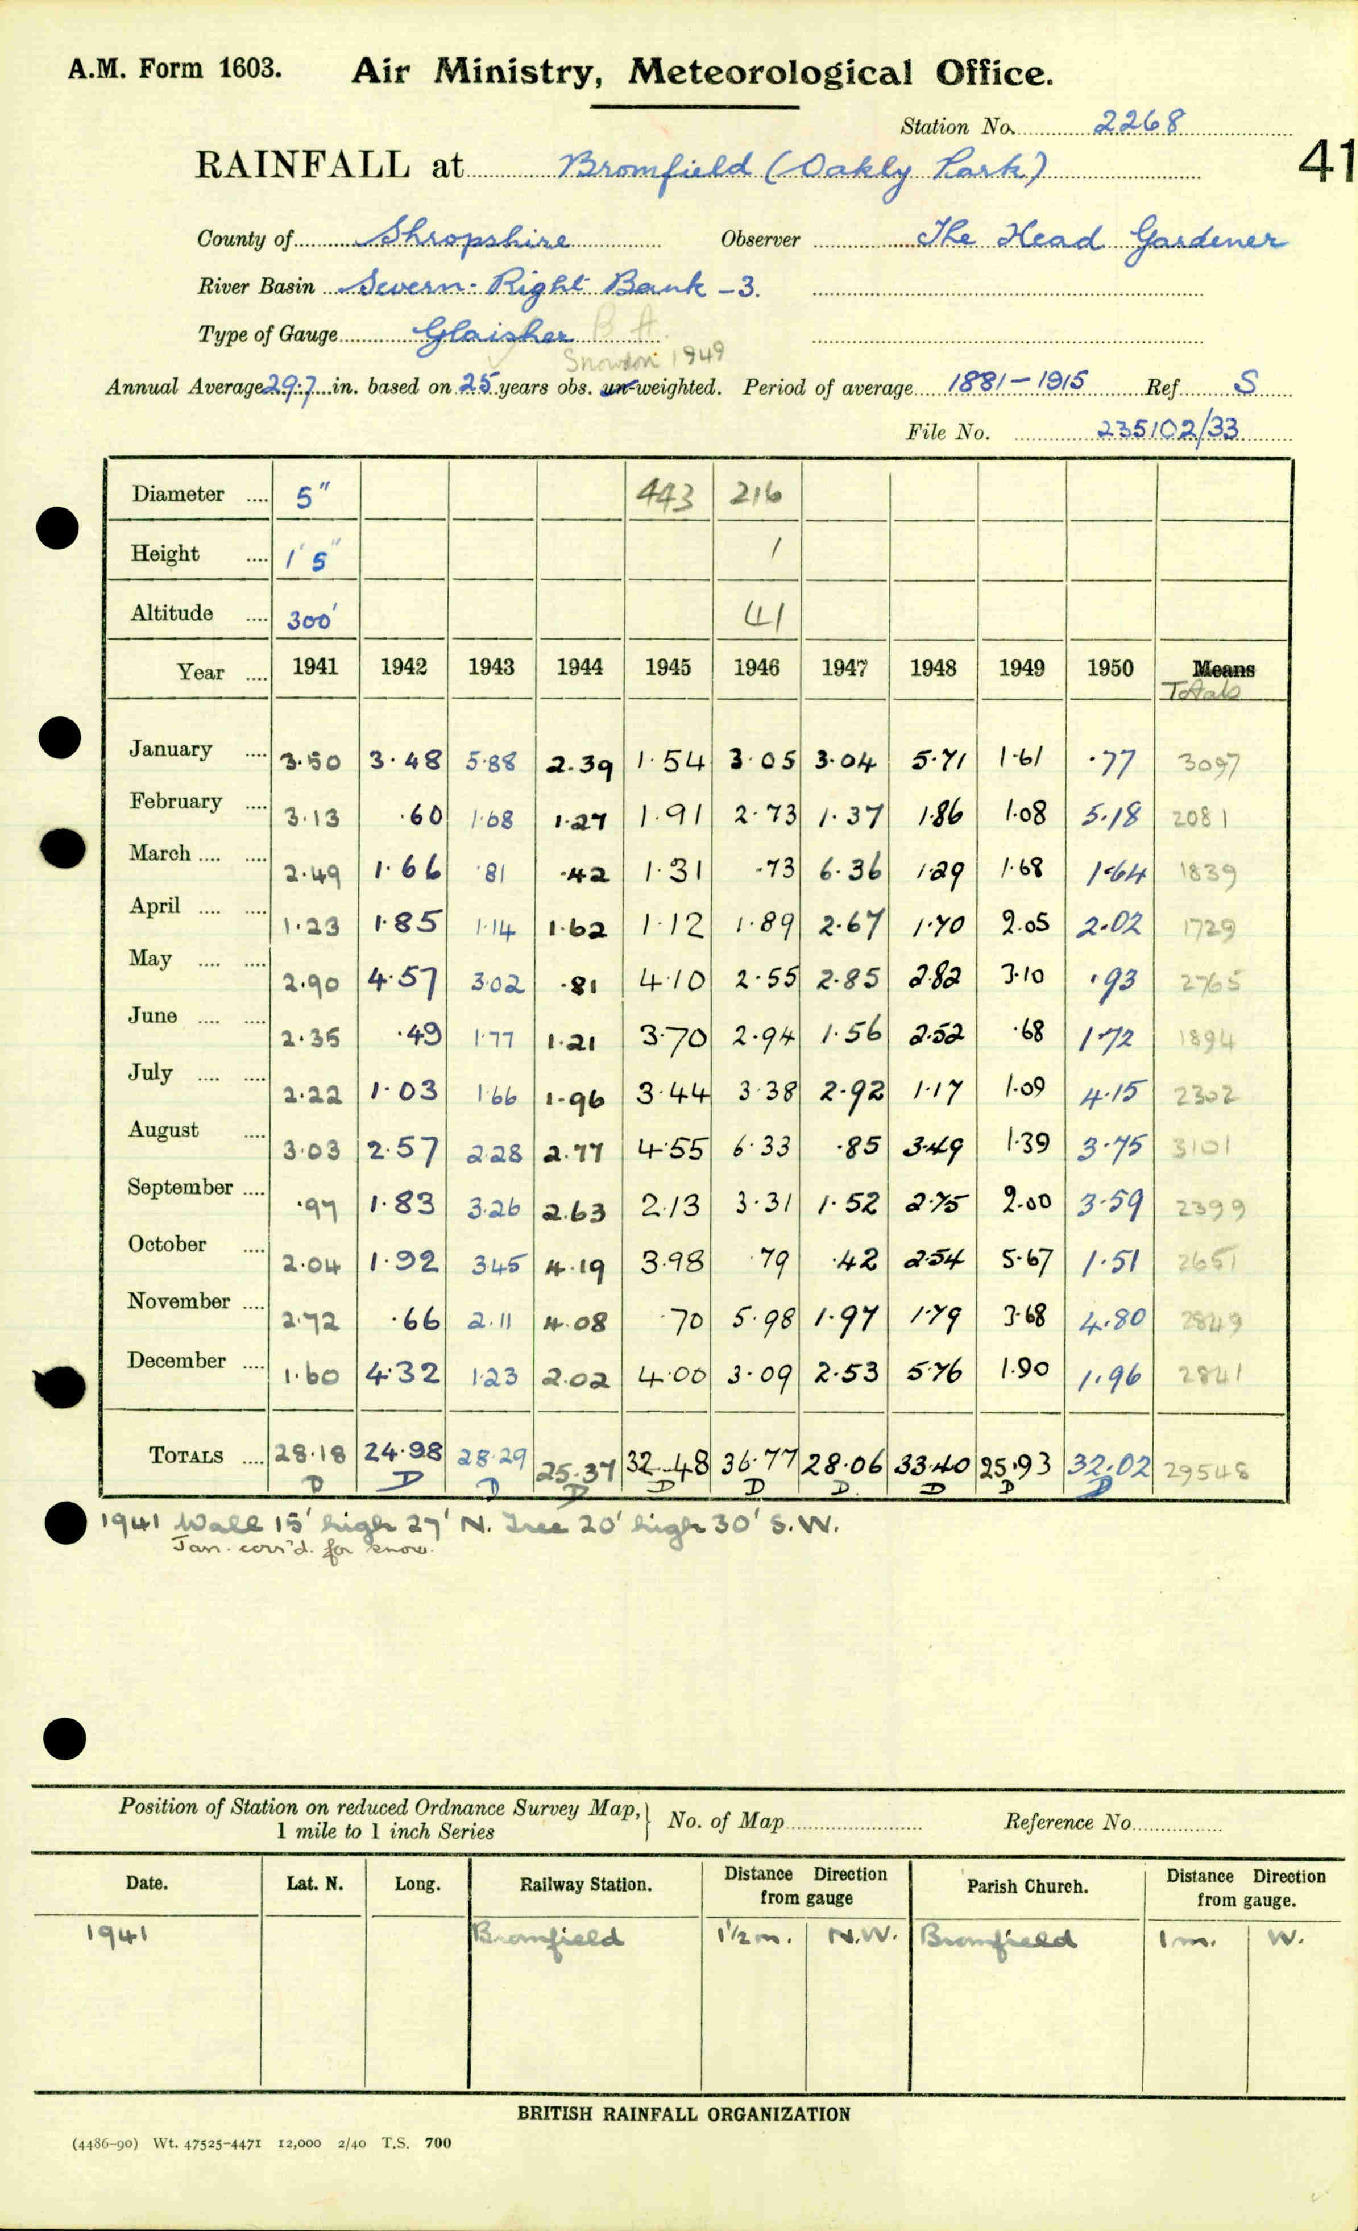 A.M. Form 1603. Air Ministry, Meteorological Office.
Station No. 2268
41
RAINFALL at Bromfield (Oakly Park)
County of Shropshire Observer The Head Gardener
River Basin Severn - Right Bank - 3.
Type of Gauge Glaisher B A.
Snowdon 1949
Annual Average 29.7 in. based on 25 years obs. un-weighted. Period of average 1881-1915 Ref. S
File No. 235102/33
Diameter .... 5" 443 216
Height .... 1' 5" 1
Altitude .... 300' 41
Year .... 1941 1942 1943 1944 1945 1946 1947 1948 1949 1950 Means
Totals
January .... 3.50 3.48 5.88 2.39 1.54 3.05 3.04 5.71 1.61 .77 3097
February .... 3.13 .60 1.68 1.27 1.91 2.73 1.37 1.86 1.08 5.18 2081
March .... .... 2.49 1.66 .81 .42 1.31 .73 6.36 1.29 1.68 1.64 1839
April .... .... 1.23 1.85 1.14 1.62 1.12 1.89 2.67 1.70 2.05 2.02 1729
May .... .... 2.90 4.57 3.02 .81 4.10 2.55 2.85 2.82 3.10 .93 2765
June .... .... 2.35 .49 1.77 1.21 3.70 2.94 1.56 2.52 .68 1.72 1894
July .... .... 2.22 1.03 1.66 1.96 3.44 3.38 2.92 1.17 1.09 4.15 2302
August .... 3.03 2.57 2.28 2.77 4.55 6.33 .85 3.49 1.39 3.75 3101
September .... .97 1.83 3.26 2.63 2.13 3.31 1.52 2.75 2.00 3.59 2399
October .... 2.04 1.92 3.45 4.19 3.98 .79 .42 2.54 5.67 1.51 2651
November .... 2.72 .66 2.11 4.08 .70 5.98 1.97 1.79 3.68 4.80 2849
December .... 1.60 4.32 1.23 2.02 4.00 3.09 2.53 5.76 1.90 1.96 2841
TOTALS .... 28.18 24.98 28.29 25.37 32.48 36.77 28.06 33.40 25.93 32.02 29548
D D D D D D D D D D
1941 Wall 15' high 27' N. Tree 20' high 30' S.W.
Jan. corr'd. for snow.
Position of Station on reduced Ordnance Survey Map, } No. of Map Reference No.
1 mile to 1 inch Series
Date. Lat. N. Long. Railway Station. Distance from gauge Direction Parish Church. Distance from gauge. Direction
1941 Bromfield 1½ m. N.W. Bromfield 1 m. W.
BRITISH RAINFALL ORGANIZATION
(4486-90) Wt. 47525-4471 12,000 2/40 T.S. 700